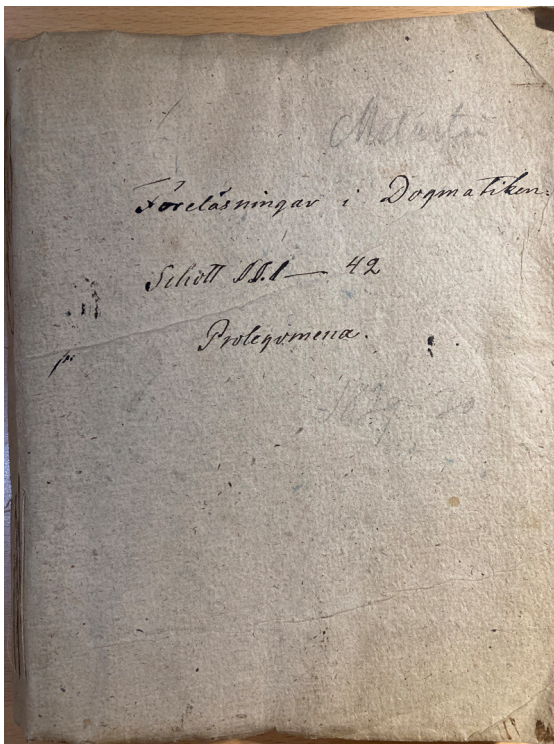 Melartin
Föreläsningar i Dogmatiken.
Schott §§.1 — 42
Prolegomena.